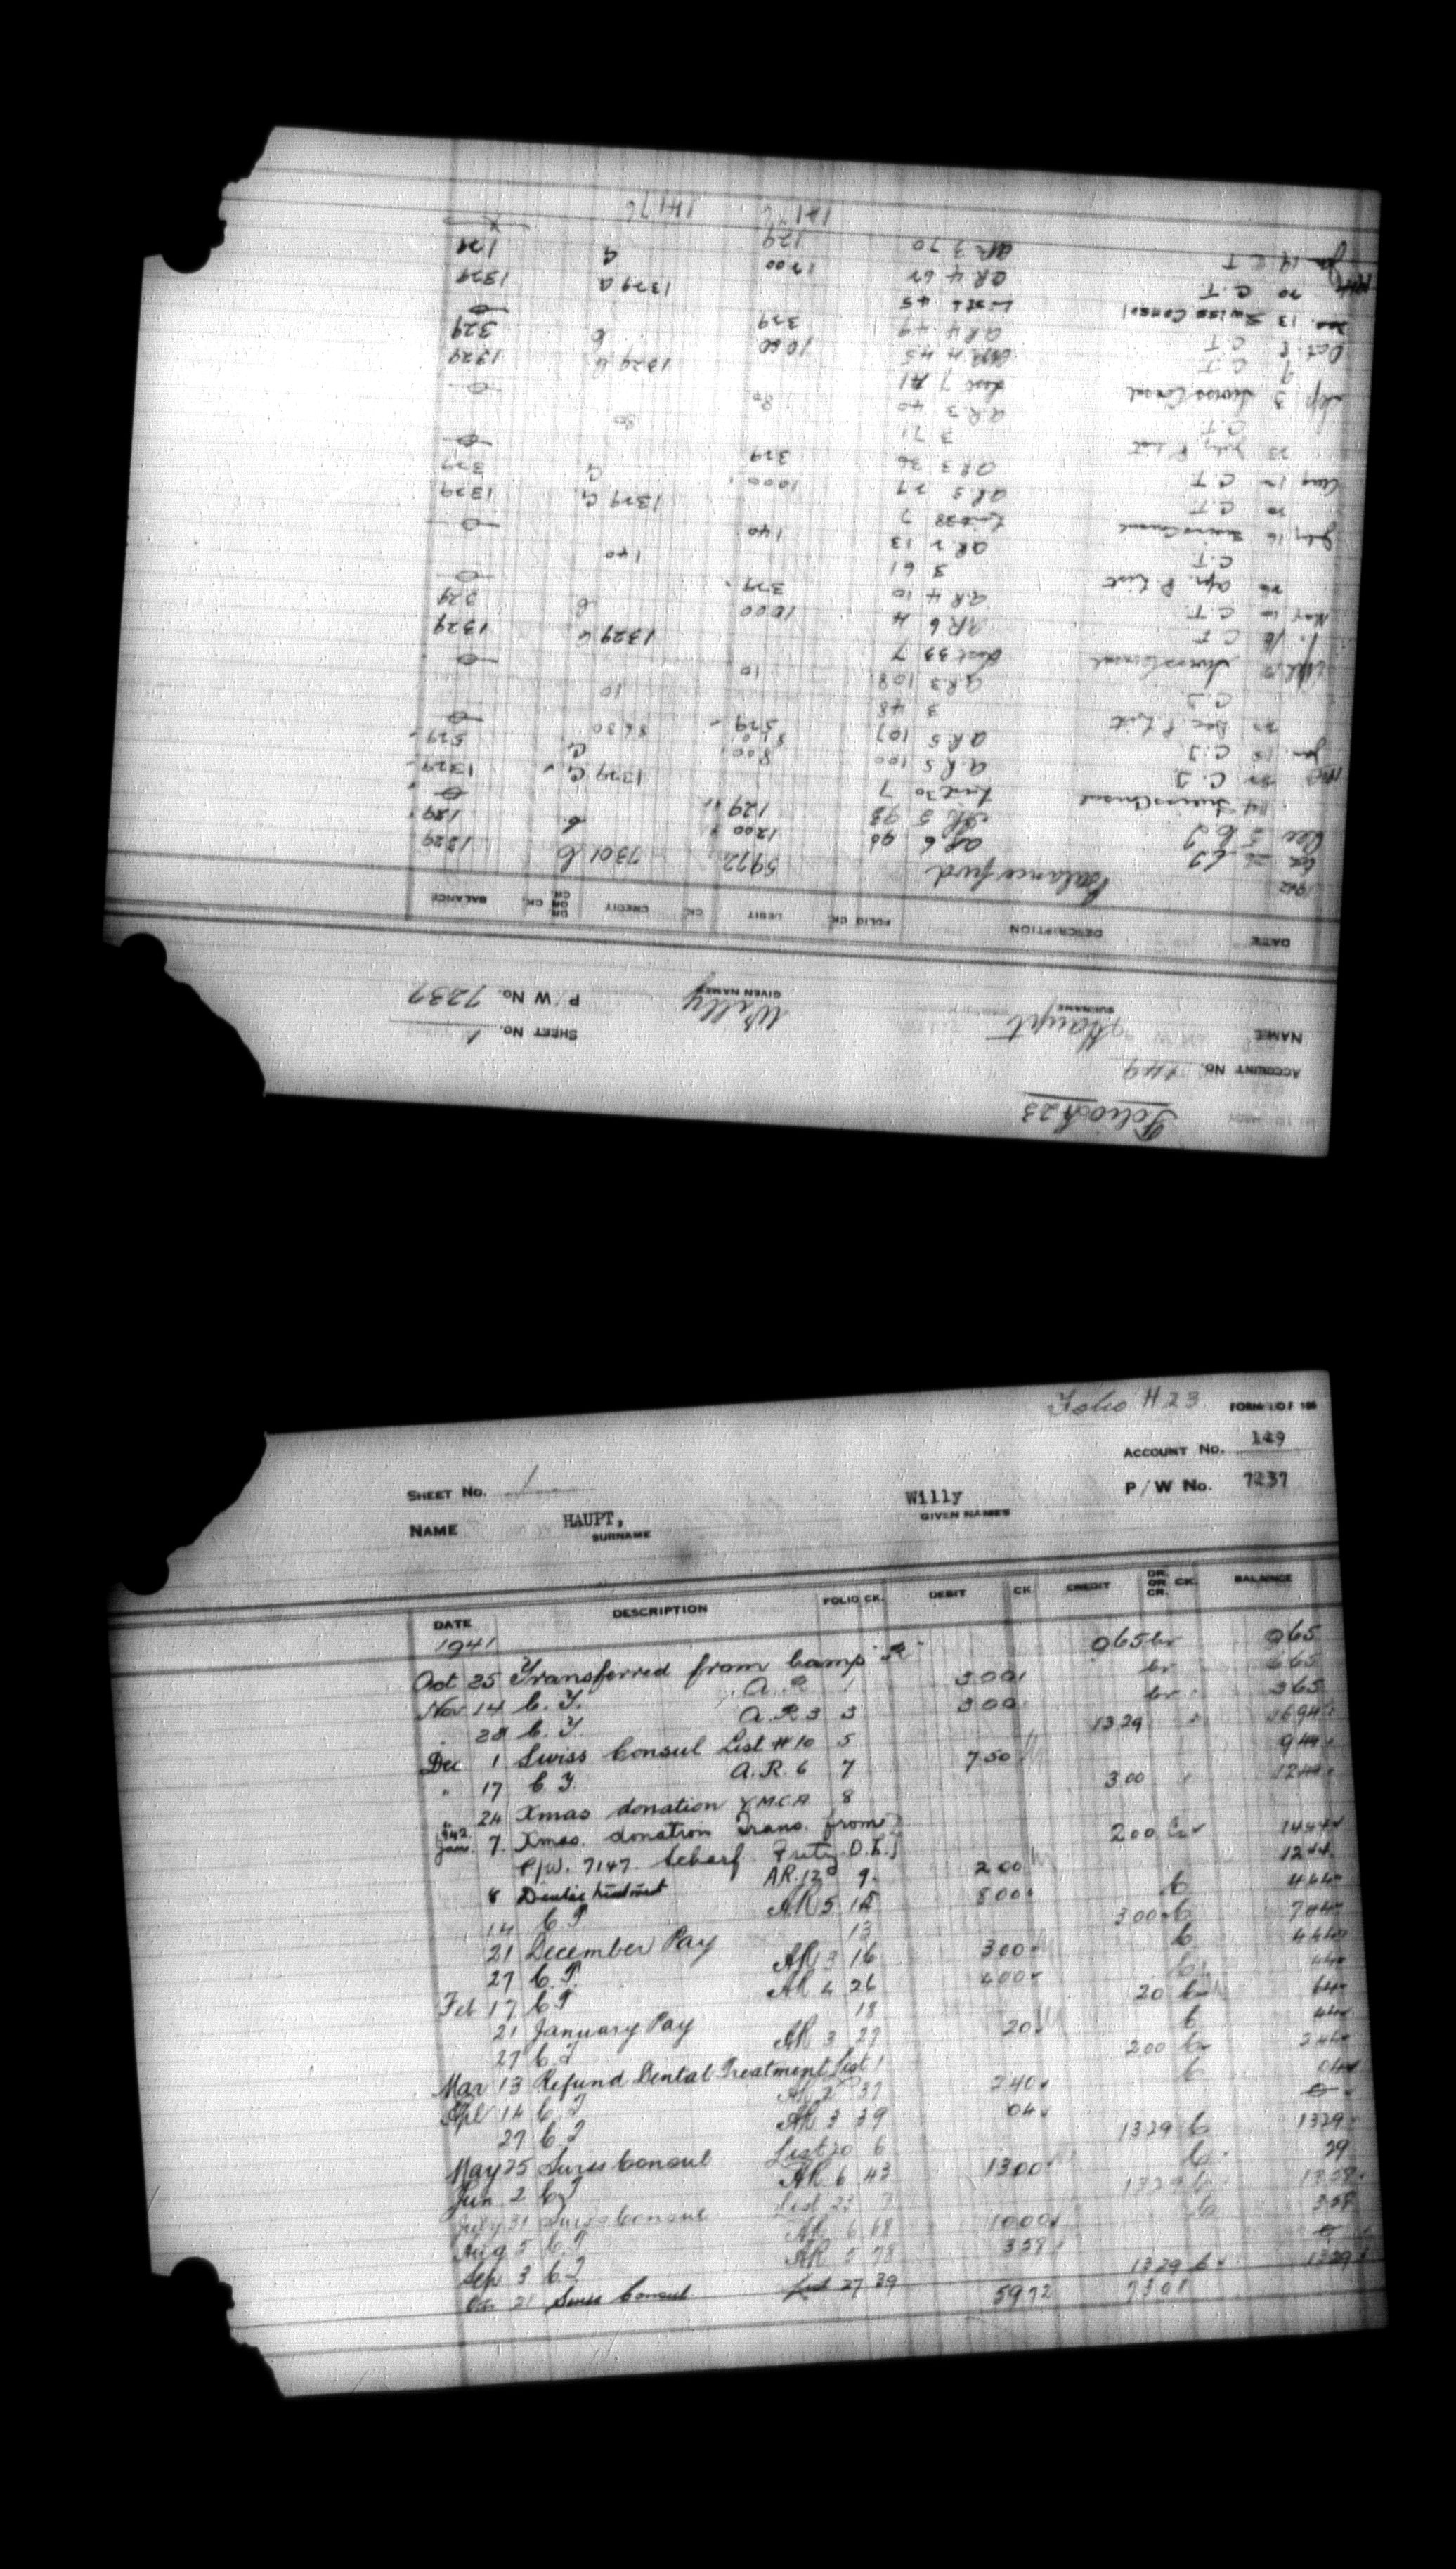 Folio H23
ACCOUNT No. 149
NAME Haupt Willy P/W No. 7237
SURNAME GIVEN NAMES
SHEET No. 1
DATE DESCRIPTION FOLIO CK. DEBIT CK. CREDIT DR. OR CR. CK. BALANCE
1942 Balance fwd 5972 7301 C 1329
AR 6 90 1200 C 129
Dec 3 AR 5 93 129
14 Swiss Consul List 30 7 1329 C 1329
C.T. AR 5 100 800 C 529
Jan. C.T. AR 5 107 529
Dec. P. List 3 48 10
C.T. AR 3 108 10
Swiss Consul List 33 7 1329 C 1329
C.T. AR 6 4 1000 C 329
May C.T. AR 4 10 329
Apr. P. List 3 61 140
C.T. AR 2 13 140
July 16 Swiss Consul List 38 7 1329 C 1329
C.T. AR 5 27 1000 C 329
Aug C.T. AR 3 36 329
July P. List 3 71 80
C.T. AR 3 40 80
Sep 3 Swiss Consul List 7 1329 C 1329
9 C.T. AR 4 45 1000 C 329
Oct 8 C.T. AR 4 49 329
13 Swiss Consol List 45 1329 1329
20 C.T. AR 4 1200 C 129
Jan 19 C.T. AR 3 70 129
14176 14176
Folio H23 FORM
ACCOUNT No. 149
SHEET No. 1
P/W No. 7237
NAME HAUPT, Willy
SURNAME GIVEN NAMES
DATE DESCRIPTION FOLIO CK. DEBIT CK. CREDIT DR. OR CR. CK. BALANCE
1941
Oct 25 Transferred from Camp "R" 965 Cr 965
Nov 14 C.T. A.R. 1 300 Cr 665
28 C.T. A.R. 3 3 300 Cr 365
Dec 1 Swiss Consul List #10 5 1329 1694
" 17 C.T. A.R. 6 7 750 944
24 Xmas donation Y.M.C.A 8 300 1244
1942 Jan. 7. Xmas. donation Trans. from
P/W. 7147. Scharf Fritz O.L. 200 Cr 1444
8 Dental treatment AR. 12 9 200 1244
14 C.T. AR 5 12 800 C 444
21 December Pay 13 300 C 744
27 C.T. AR 3 16 300 C 444
Feb 17 C.T. AR 4 26 400 C 44
21 January Pay 18 20 C 64
27 C.T. AR 3 27 20 C 44
Mar 13 Refund Dental Treatment List 1 200 C 244
Apl 14 C.T. AR 2 37 240 C 04
27 C.T. AR 3 39 04
May 25 Swiss Consul List 20 6 1329 C 1329
Jun 2 C.T. AR 6 43 1300 C 29
July 31 Swiss Consul List 23 7 1329 C 1358
Aug 5 C.T. AR 6 68 1000 C 358
Sep 3 C.T. AR 5 78 358
21 Swiss Consul List 27 39 1329 C 1329
5972 7301